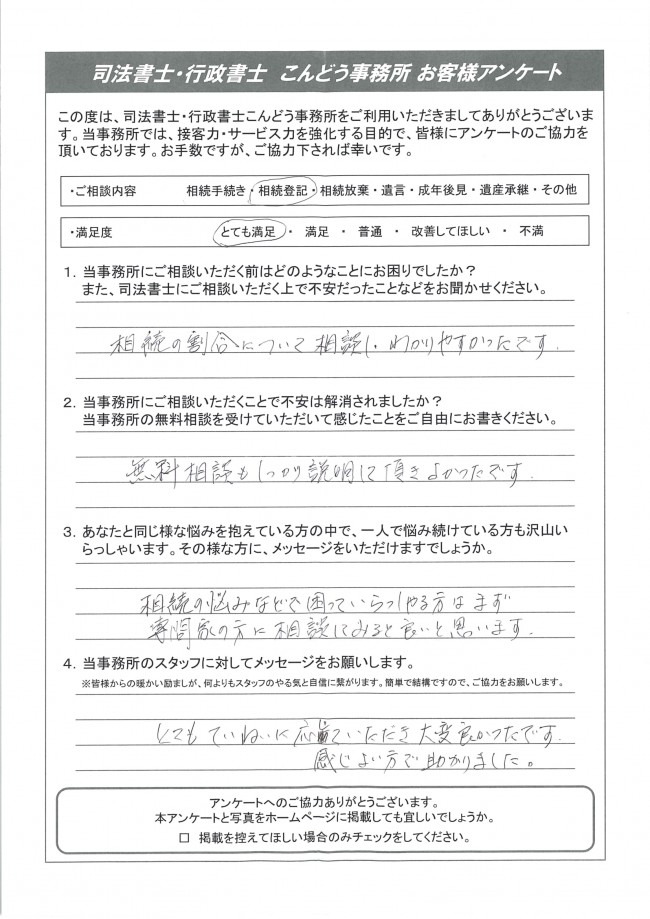 司法書士・行政書士 こんどう事務所 お客様アンケート
この度は、司法書士・行政書士こんどう事務所をご利用いただきましてありがとうございま
す。当事務所では、接客力・サービス力を強化する目的で、皆様にアンケートのご協力を
頂いております。お手数ですが、ご協力下されば幸いです。
・ご相談内容 相続手続き・相続登記・相続放棄・遺言・成年後見・遺産承継・その他
・満足度 とても満足 ・ 満足 ・ 普通 ・ 改善してほしい ・ 不満
1. 当事務所にご相談いただく前はどのようなことにお困りでしたか？
また、司法書士にご相談いただく上で不安だったことなどをお聞かせください。
相続の割合について相談し、わかりやすかったです.
2. 当事務所にご相談いただくことで不安は解消されましたか？
当事務所の無料相談を受けていただいて感じたことをご自由にお書きください。
無料相談もしっかり説明して頂きよかったです.
3. あなたと同じ様な悩みを抱えている方の中で、一人で悩み続けている方も沢山い
らっしゃいます。その様な方に、メッセージをいただけますでしょうか。
相続の悩みなどで困っていらっしゃる方はまず
専門家の方に相談してみると良いと思います.
4. 当事務所のスタッフに対してメッセージをお願いします。
※皆様からの暖かい励ましが、何よりもスタッフのやる気と自信に繋がります。簡単で結構ですので、ご協力をお願いします。
とてもていねいに応じていただき大変良かったです.
感じよい方で助かりました。
アンケートへのご協力ありがとうございます。
本アンケートと写真をホームページに掲載しても宜しいでしょうか。
□ 掲載を控えてほしい場合のみチェックをしてください。